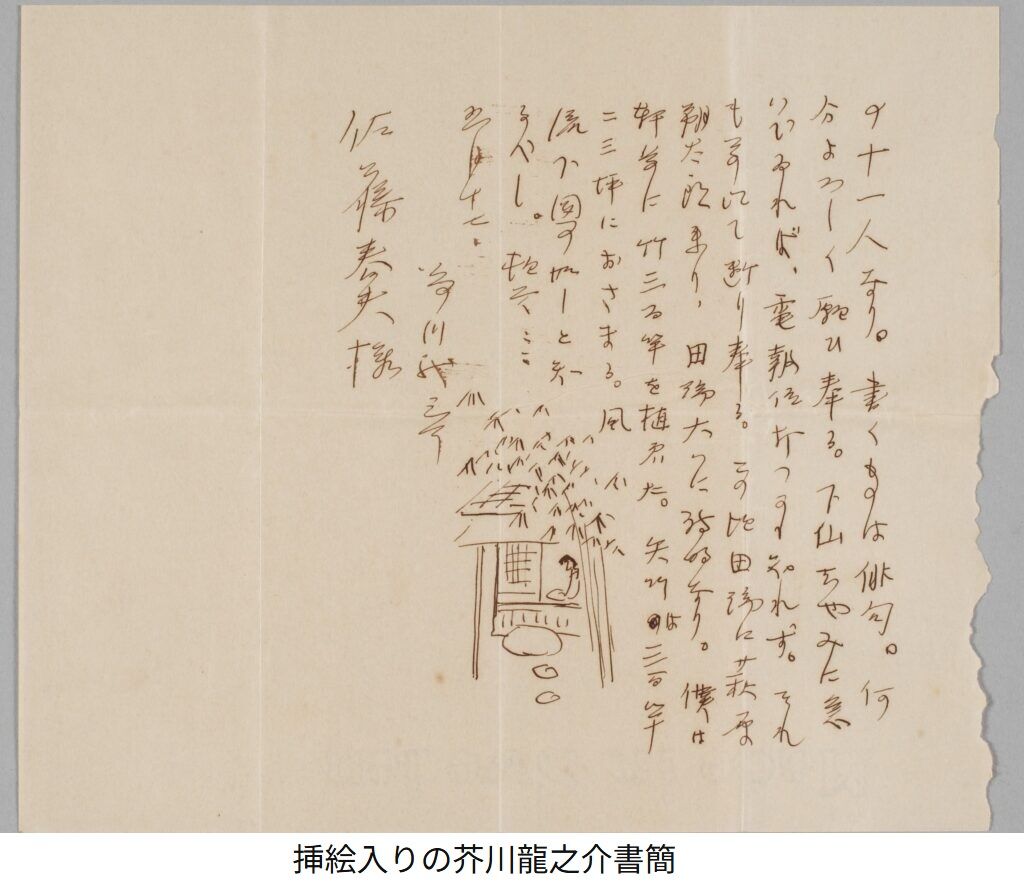 の十一人なり。書くものは俳句。何
分よろしく願ひ奉る。下 やみに急
いでゐれば、電報位打つかも知れず。それ
も前以て断り奉る。この頃田端に萩原
朔太郎来り、田端大いに詩的なり。僕は
軒前に竹三百竿を植ゑた。矢竹は三百竿
二三坪におさまる。風
流下図の如しと知
るべし。頓首
五月十七
芥川龍之介
佐藤春夫様
挿絵入りの芥川龍之介書簡